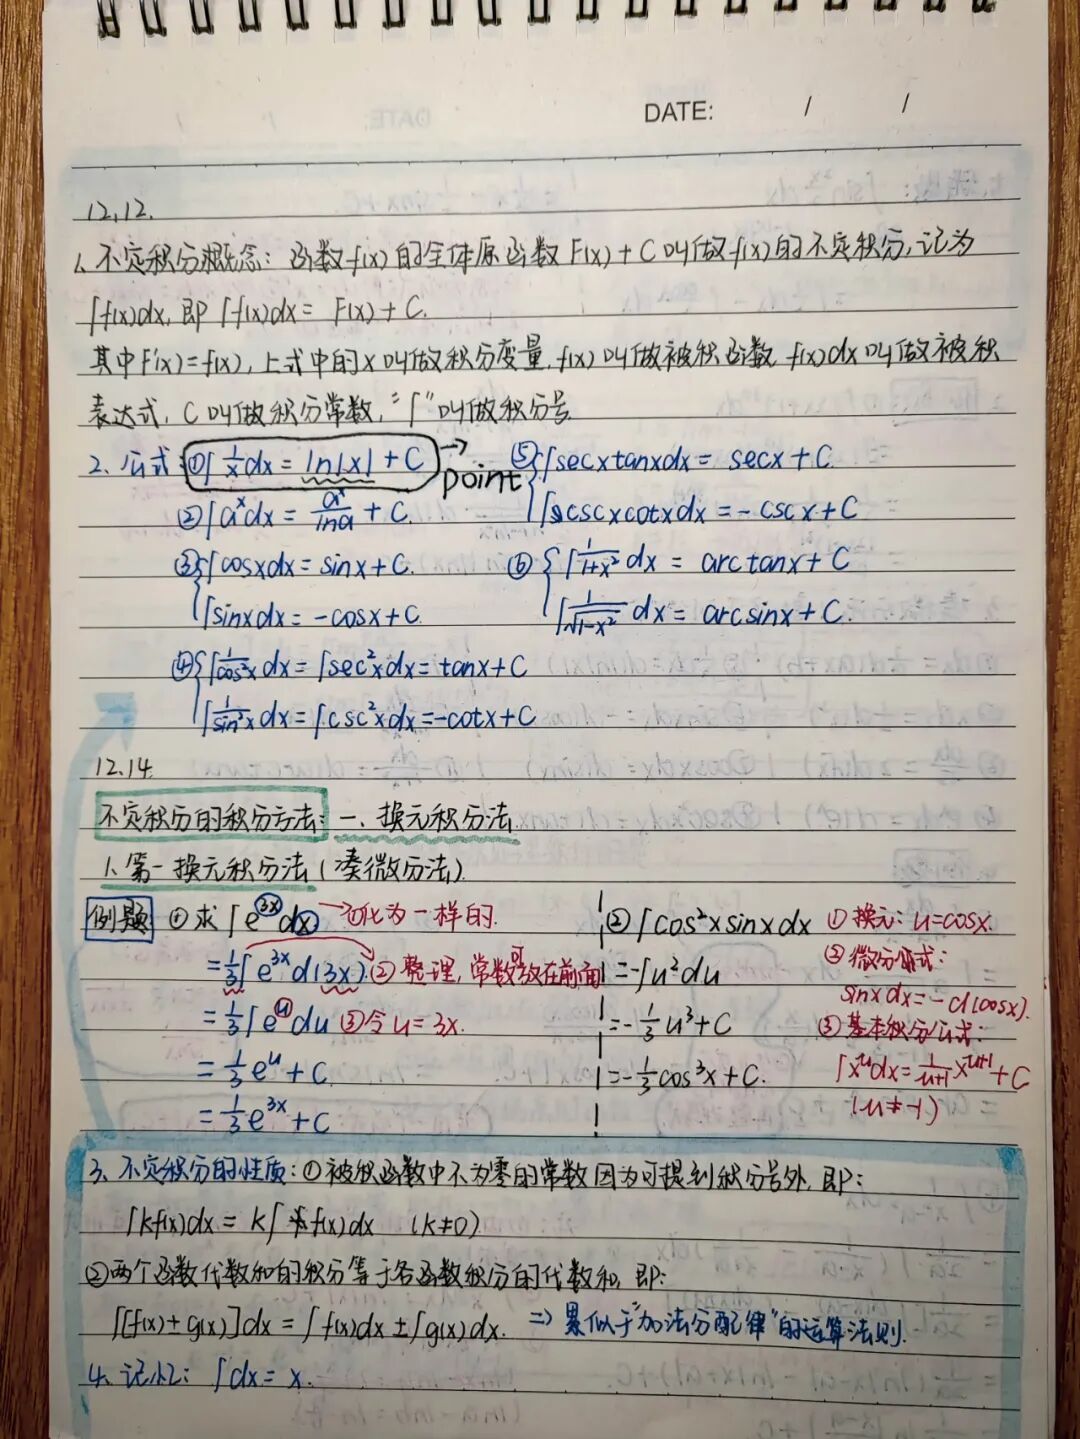 DATE: / /
12.12.
1. 不定积分概念: 函数f(x)的全体原函数F(x)+C叫做f(x)的不定积分,记为
∫f(x)dx, 即∫f(x)dx = F(x)+C.
其中F'(x)=f(x), 上式中的x叫做积分变量, f(x)叫做被积函数, f(x)dx叫做被积
表达式, C叫做积分常数, "∫"叫做积分号
2. 公式: ①∫1/x dx = ln|x| + C → point
②∫a^x dx = a^x/lna + C.
③{∫cosxdx = sinx+C.
∫sinxdx = -cosx+C.
④{∫1/cos²x dx = ∫sec²xdx = tanx+C
∫1/sin²x dx = ∫csc²xdx = -cotx+C
⑤{∫secxtanxdx = secx+C.
∫cscxcotxdx = -cscx+C
⑥{∫1/1+x² dx = arctanx+C
∫1/√1-x² dx = arcsinx+C.
12.14.
不定积分的积分方法: 一、换元积分法
1. 第一换元积分法(凑微分法).
例题 ①求∫e^3x dx →①化为一样的.
=1/3∫e^3x d(3x). ②整理, 常数可放在前面
=1/3∫e^u du ③令u=3x.
=1/3e^u+C.
=1/3e^3x+C
②∫cos²xsinxdx ①换元: u=cosx.
=-∫u²du ②微分公式:
sinxdx=-d(cosx).
=-1/3u³+C ③基本积分公式:
=-1/3cos³x+C. ∫x^u dx=1/u+1 x^u+1+C
(u≠-1)
3. 不定积分的性质: ①被积函数中不为零的常数因为可提到积分号外, 即:
∫kf(x)dx = k∫f(x)dx (k≠0)
②两个函数代数和的积分等于各函数积分的代数和, 即:
∫[f(x)±g(x)]dx = ∫f(x)dx±∫g(x)dx. ⇒ 累似于"加法分配律"的运算法则.
4. 记忆: ∫dx = x.